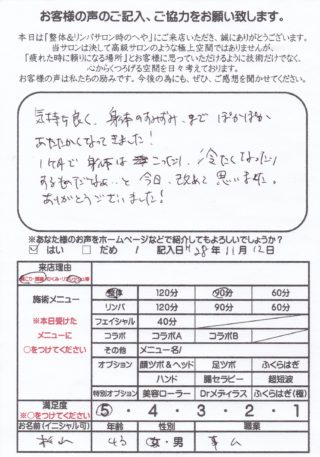 お客様の声のご記入、ご協力をお願い致します。
本日は《整体&リンパサロン時のへや》にご来店いただき、誠にありがとうございます。
当サロンは決して高級サロンのような極上空間ではありませんが、
「疲れた時に頼りになる場所」とお客様に思っていただけるように技術だけでなく、
心からつくろげる空間を日々考えております。
お客様の声は私たちの励みです。今後の為にも、ぜひ、ご感想を聞かせてください。
気持ち良く、身体のすみずみまでぽかぽか
あたたかくなってきました!
1ヶ月で身体はこったり、冷たくなったり
するものだなぁ…と今日、改めて思いました。
ありがとうございました!
※あなた様のお声をホームページなどで紹介してもよろしいでしょうか?
☑ はい □ だめ / 記入日 H28年11月12日
来店理由
施術メニュー
※本日受けた
メニューに
○をつけてください
整体 120分 90分 60分
リンパ 120分 90分 60分
フェイシャル 40分
コラボ コラボA コラボB
その他 メニュー名/
オプション 顔ツボ&ヘッド 足ツボ ふくらはぎ
ハンド 腸セラピー 超短波
特別オプション 美容ローラー Drメディラス ふくらはぎ(極)
満足度
※○をつけてください
5・4・3・2・1
お名前(イニシャル可) 年齢 性別 職業
松山 43 女・男